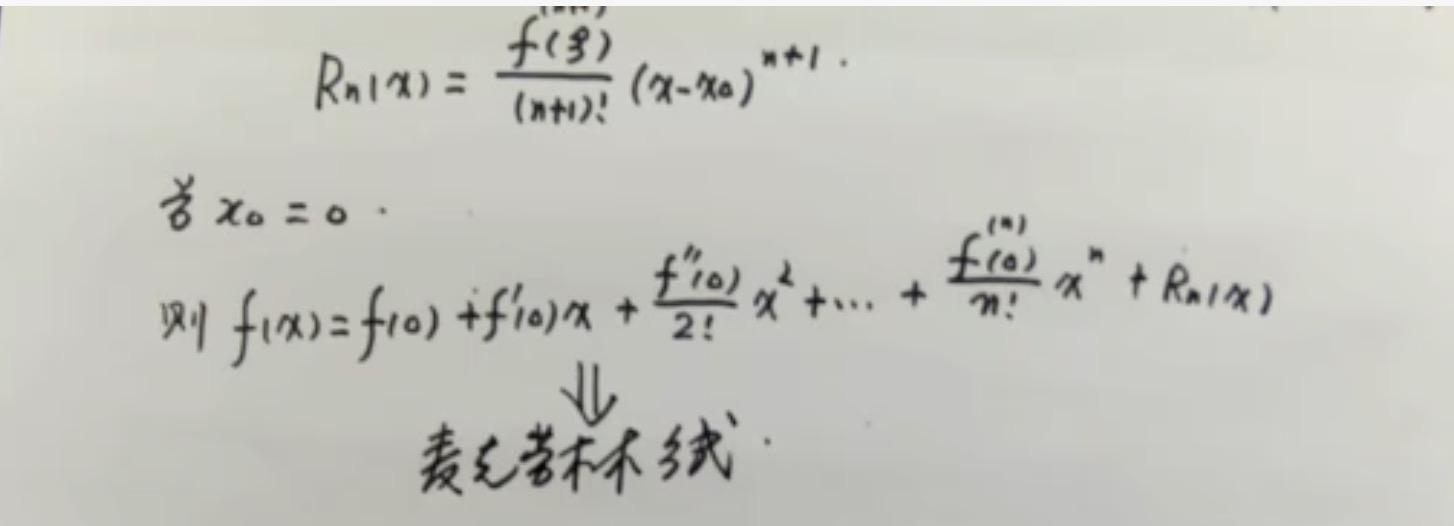 Rn(x) = f^{(n+1)}(ξ)/(n+1)! (x-x₀)^{n+1}.
若 x₀ = 0.
则 f(x) = f(0) + f'(0)x + f''(0)/2! x² + … + f^{(n)}(0)/n! xⁿ + Rn(x)
⇓
麦克劳林公式.